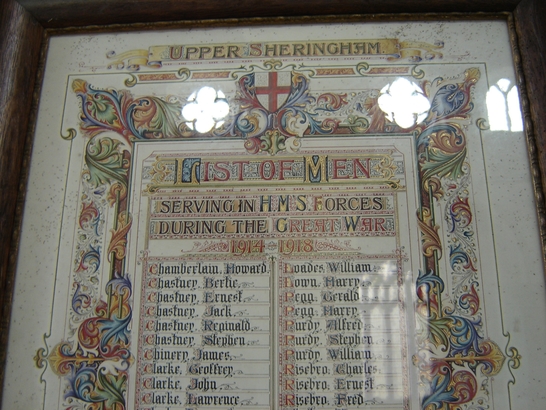 UPPER SHERINGHAM
LIST OF MEN
SERVING IN H.M.S. FORCES
DURING THE GREAT WAR
1914 - 1918
Chamberlain, Howard.
Chastney, Bertie.
Chastney, Ernest.
Chastney, Jack
Chastney, Reginald.
Chastney, Stephen
Chinery, James.
Clarke, Geoffrey
Clarke, John
Clarke, Lawrence
Loades, William.
Lown, Harry
Pegg, Gerald
Pegg, Harry
Purdy, Alfred
Purdy, Stephen
Purdy, William
Risebro, Charles
Risebro, Ernest
Risebro, Fred